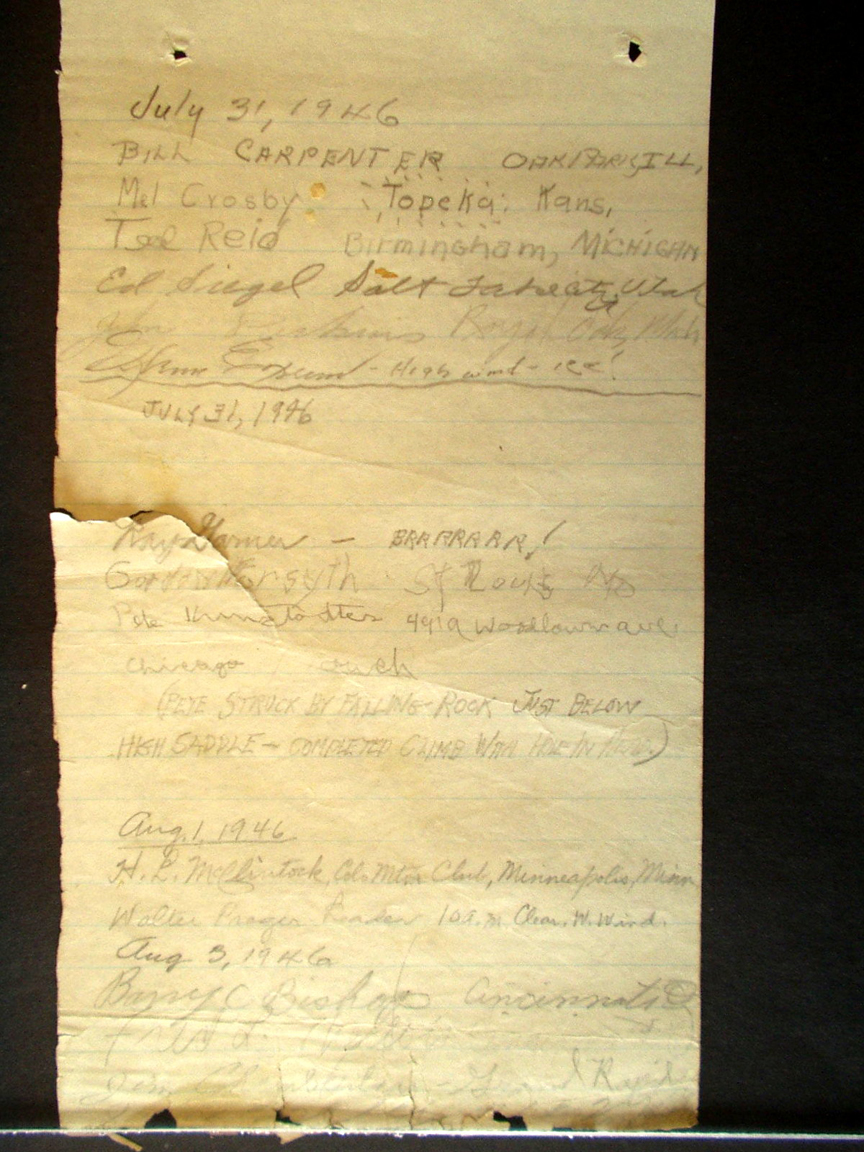 July 31, 1946
BILL CARPENTER OAK PARK, ILL.
Mel Crosby Topeka, Kans.
Ted Reid Birmingham, MICHIGAN
Ed Siegel Salt Lake City Utah
Royal Oak, Mich
Glenn Exum - High wind - ice!
JULY 31, 1946
Ray Garner - BRRRRRRR!
Gordon Forsyth St Louis Mo
Pete 4919 Woodlawn ave
Chicago ouch
(PETE STRUCK BY FALLING ROCK JUST BELOW
HIGH SADDLE - COMPLETED CLIMB WITH HOLE IN HEAD.)
Aug. 1, 1946
H. L. McClintock, Colo Mtn Club, Minneapolis, Minn
Walter Prager Leader 10 a.m Clear. W. Wind.
Aug 3, 1946
Barry C Bishop Cincinnati O
Fred L.
Jim Grand Rapids